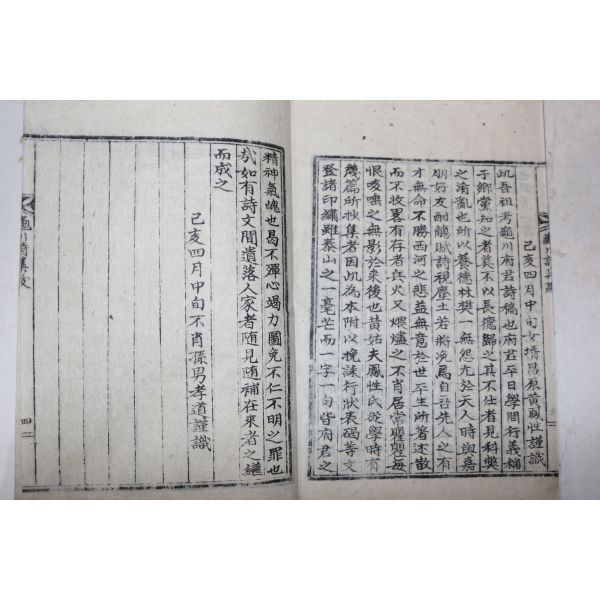 己亥四月中旬女壻昌原黃鳳性謹識
此吾祖考龜川府君詩稿也府君平日學問行義稱
于鄉黨知之者莫不以長德歸之其不仕者見科獘
之淆亂也所以養德林樊一無怨尤於天人時與嘉
朋好友酣觴賦詩視塵土若將浼焉自吾先人之有
才無命不勝西河之悲益無意於世平生所著述散
而不收畧有存者兵火又煨燼之不肖居常瞿瞿每
恨咳唾之無影於來後也黃姑夫鳳性氏從學時有
幾篇所抄集者因此為本附以挽誄行狀表碣等文
登諸印繡雖泰山之一毫芒而一字一句皆府君之
精神氣魄也曷不殫心竭力圖免不仁不明之罪也
哉如有詩文間遺落人家者隨見隨補在來者之繼
而成之
己亥四月中旬不肖孫男孝道謹識
龜川詩集跋
四